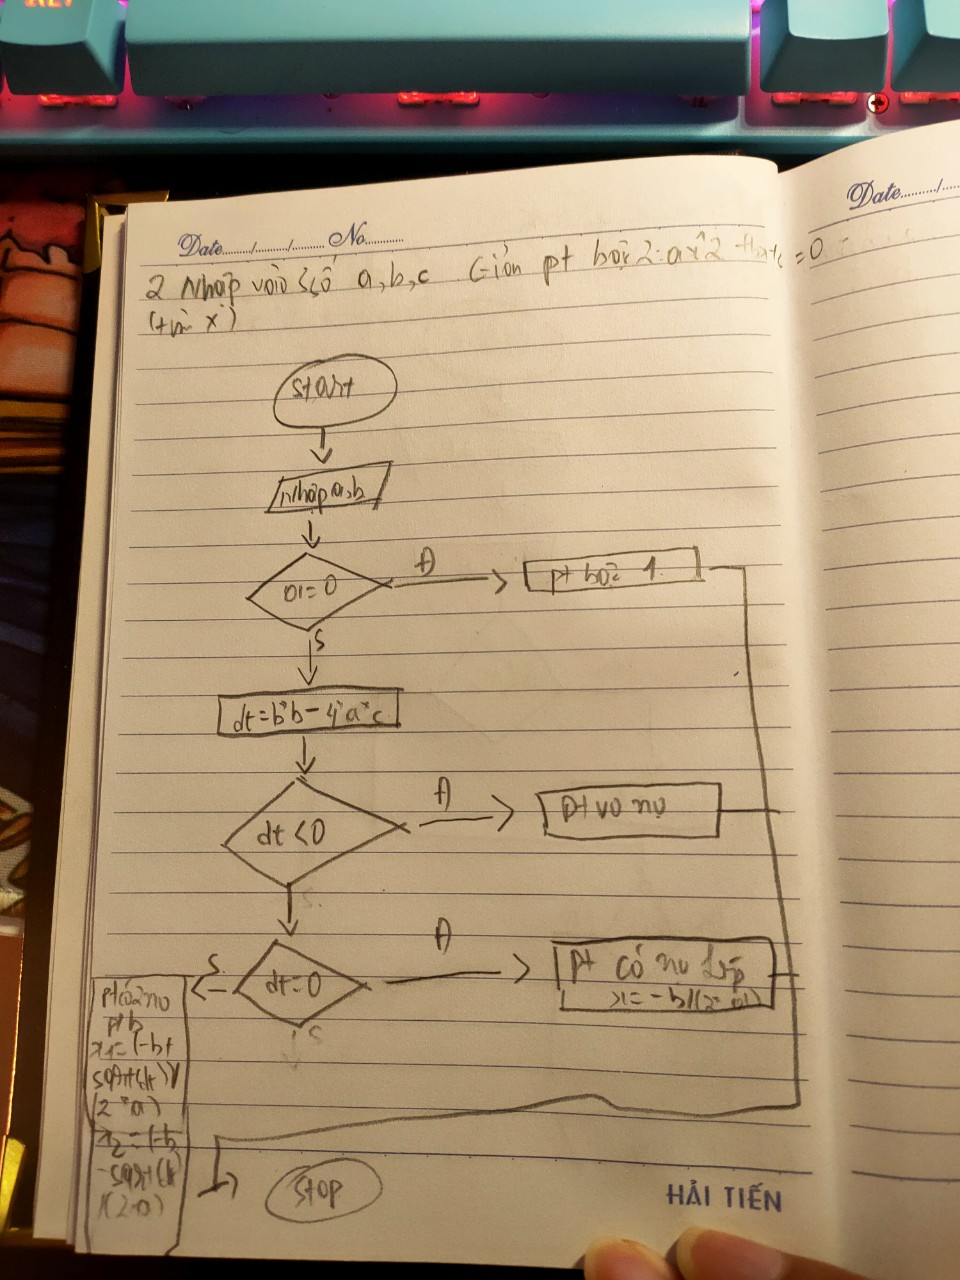 Date......../......../........ No...........
Date........../.....
2 Nhập vào 3 số a,b,c Giải pt bậc 2: ax^2 +bx+c =0
(tìm x)
Start
Nhập a,b
a=0
Đ
pt bậc 1
S
dt=b*b-4*a*c
dt<0
Đ
pt vo no
S.
dt=0
Đ
pt có no kép
x=-b/(2*a)
S
S
pt có 2 no
pb
x1=(-b+
sqrt(dt))/
(2*a)
x2=(-b
-sqrt(dt
)/(2*a)
Stop
HẢI TIẾN